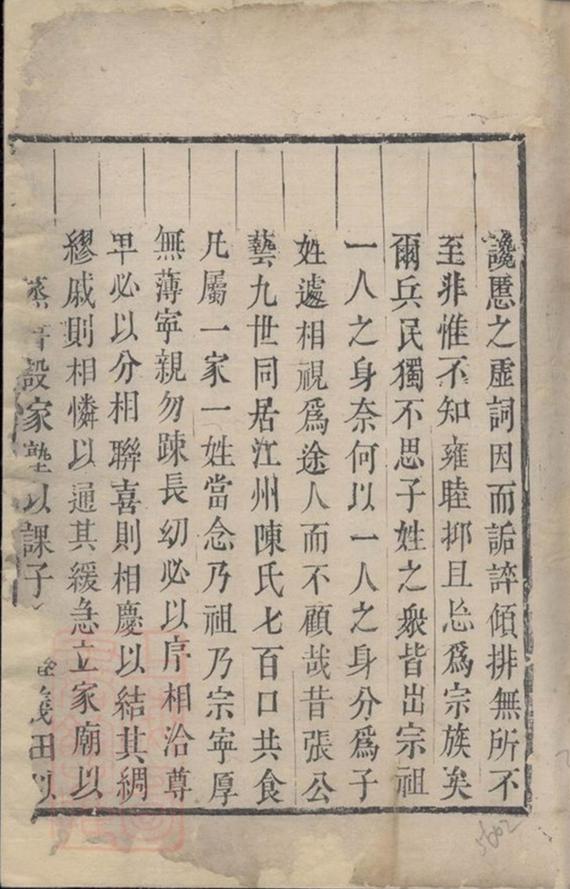 讒慝之虛詞因而詬誶傾排無所不
至非惟不知雍睦抑且忘爲宗族矣
爾兵民獨不思子姓之衆皆出宗祖
一人之身奈何以一人之身分爲子
姓遽相視爲途人而不顧哉昔張公
藝九世同居江州陳氏七百口共食
凡屬一家一姓當念乃祖乃宗寧厚
無薄寧親勿疎長幼必以序相洽尊
卑必以分相聯喜則相慶以結其綢
繆戚則相憐以通其緩急立家廟以
設家塾以課子義田以
5662